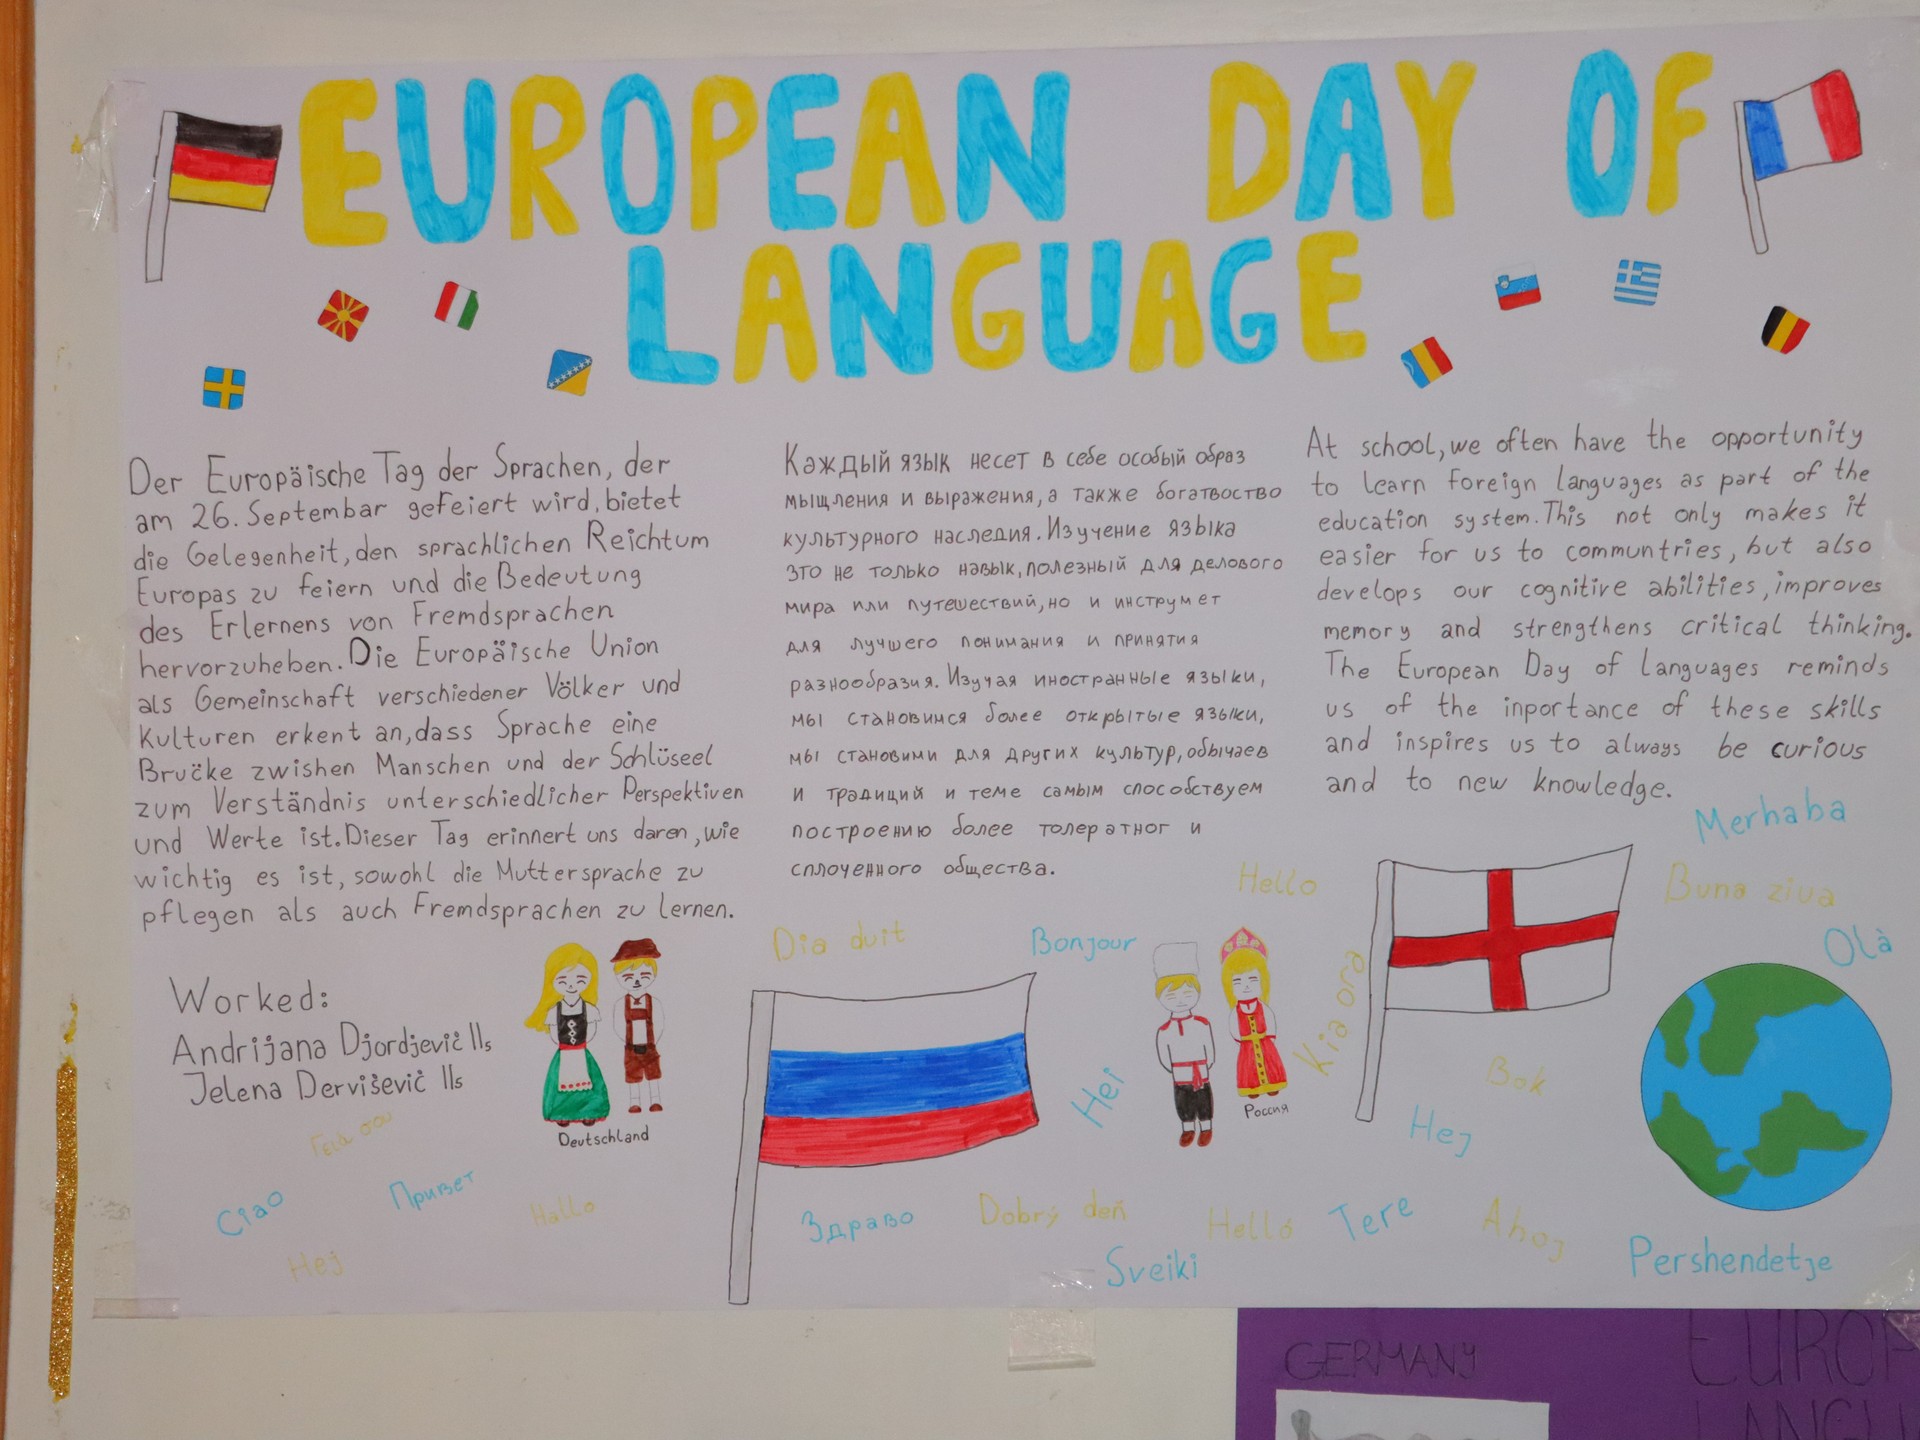 EUROPEAN DAY OF
LANGUAGE
Der Europäische Tag der Sprachen, der
am 26. Septembar gefeiert wird, bietet
die Gelegenheit, den sprachlichen Reichtum
Europas zu feiern und die Bedeutung
des Erlernens von Fremdsprachen
hervorzuheben. Die Europäische Union
als Gemeinschaft verschiedener Völker und
Kulturen erkent an, dass Sprache eine
Brücke zwishen Manschen und der Schlüseel
zum Verständnis unterschiedlicher Perspektiven
und Werte ist. Dieser Tag erinnert uns daren, wie
wichtig es ist, sowohl die Muttersprache zu
pflegen als auch Fremdsprachen zu lernen.
Каждый язык несет в себе особый образ
мыщления и выражения, а также богатвоство
культурного наследия. Изучение языка
это не только навык, полезный для делового
мира или путешествий, но и инструмет
для лучшего понимания и принятия
разнообразия. Изучая иностранные языки,
мы становимся более открытые языки,
мы становими для других культур, обычаев
и традиций и теме самым способствуем
построению более толератног и
сплоченного общества.
At school, we often have the opportunity
to learn foreign languages as part of the
education system. This not only makes it
easier for us to communtries, but also
develops our cognitive abilities, improves
memory and strengthens critical thinking.
The European Day of languages reminds
us of the inportance of these skills
and inspires us to always be curious
and to new knowledge.
Worked:
Andrijana Djordjevič IIs
Jelena Derviševič IIs
Deutschland
Россия
Merhaba
Buna ziua
Olà
Hello
Dia duit
Bonjour
Kia ora
Hei
Bok
Hej
Γειά σου
Ciao
Привет
Hallo
Hej
Здраво
Dobrý deň
Helló
Tere
Ahoj
Sveiki
Pershendetje
GERMANY